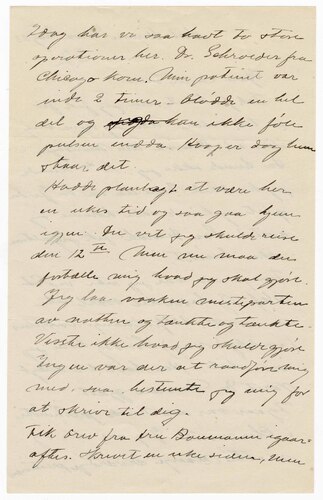 Idag har vi saa havt to store
operationer her. Dr. Schroeder fra
Chicago kom. Min patient var
inde 2 timer. Blødde en hel
del og kan ikke føle
pulsen endda. Haaper dog hun
staar det.
Hadde planlagt at være her
en ukes tid og saa gaa hjem
igjen. Du vet jeg skulde reise
den 12te Men nu maa du
fortælle mig hvad jeg skal gjøre.
Jeg laa vaaken mesteparten
av natten og tænkte og tænkte.
Visste ikke hvad jeg skulde gjøre
Ingen var der at raadføre mig
med, saa bestemte jeg mig for
at skrive til dig.
Fik brev fra fru Baumann igaar-
aftes. Skrevet en uke siden, men